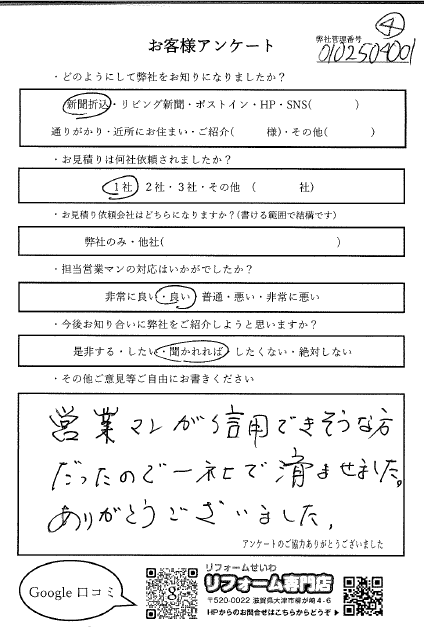 ④
お客様アンケート
弊社管理番号
0102504001
・どのようにして弊社をお知りになりましたか？
新聞折込・リビング新聞・ポストイン・HP・SNS(　　　)
通りがかり・近所にお住まい・ご紹介(　　　様)・その他(　　　)
・お見積りは何社依頼されましたか？
1社 2社・3社・その他 (　　　社)
・お見積り依頼会社はどちらになりますか？(書ける範囲で結構です)
弊社のみ・他社(　　　)
・担当営業マンの対応はいかがでしたか？
非常に良い・良い 普通・悪い・非常に悪い
・今後お知り合いに弊社をご紹介しようと思いますか？
是非する・したい・聞かれれば したくない・絶対しない
・その他ご意見等ご自由にお書きください
営業マンが信用できそうな方
だったので一社で済ませました。
ありがとうございました。
アンケートのご協力ありがとうございました
Google 口コミ
g
リフォームせいわ
リフォーム専門店
〒520-0022 滋賀県大津市柳が崎4-6
HPからのお問合せはこちらからどうぞ▶